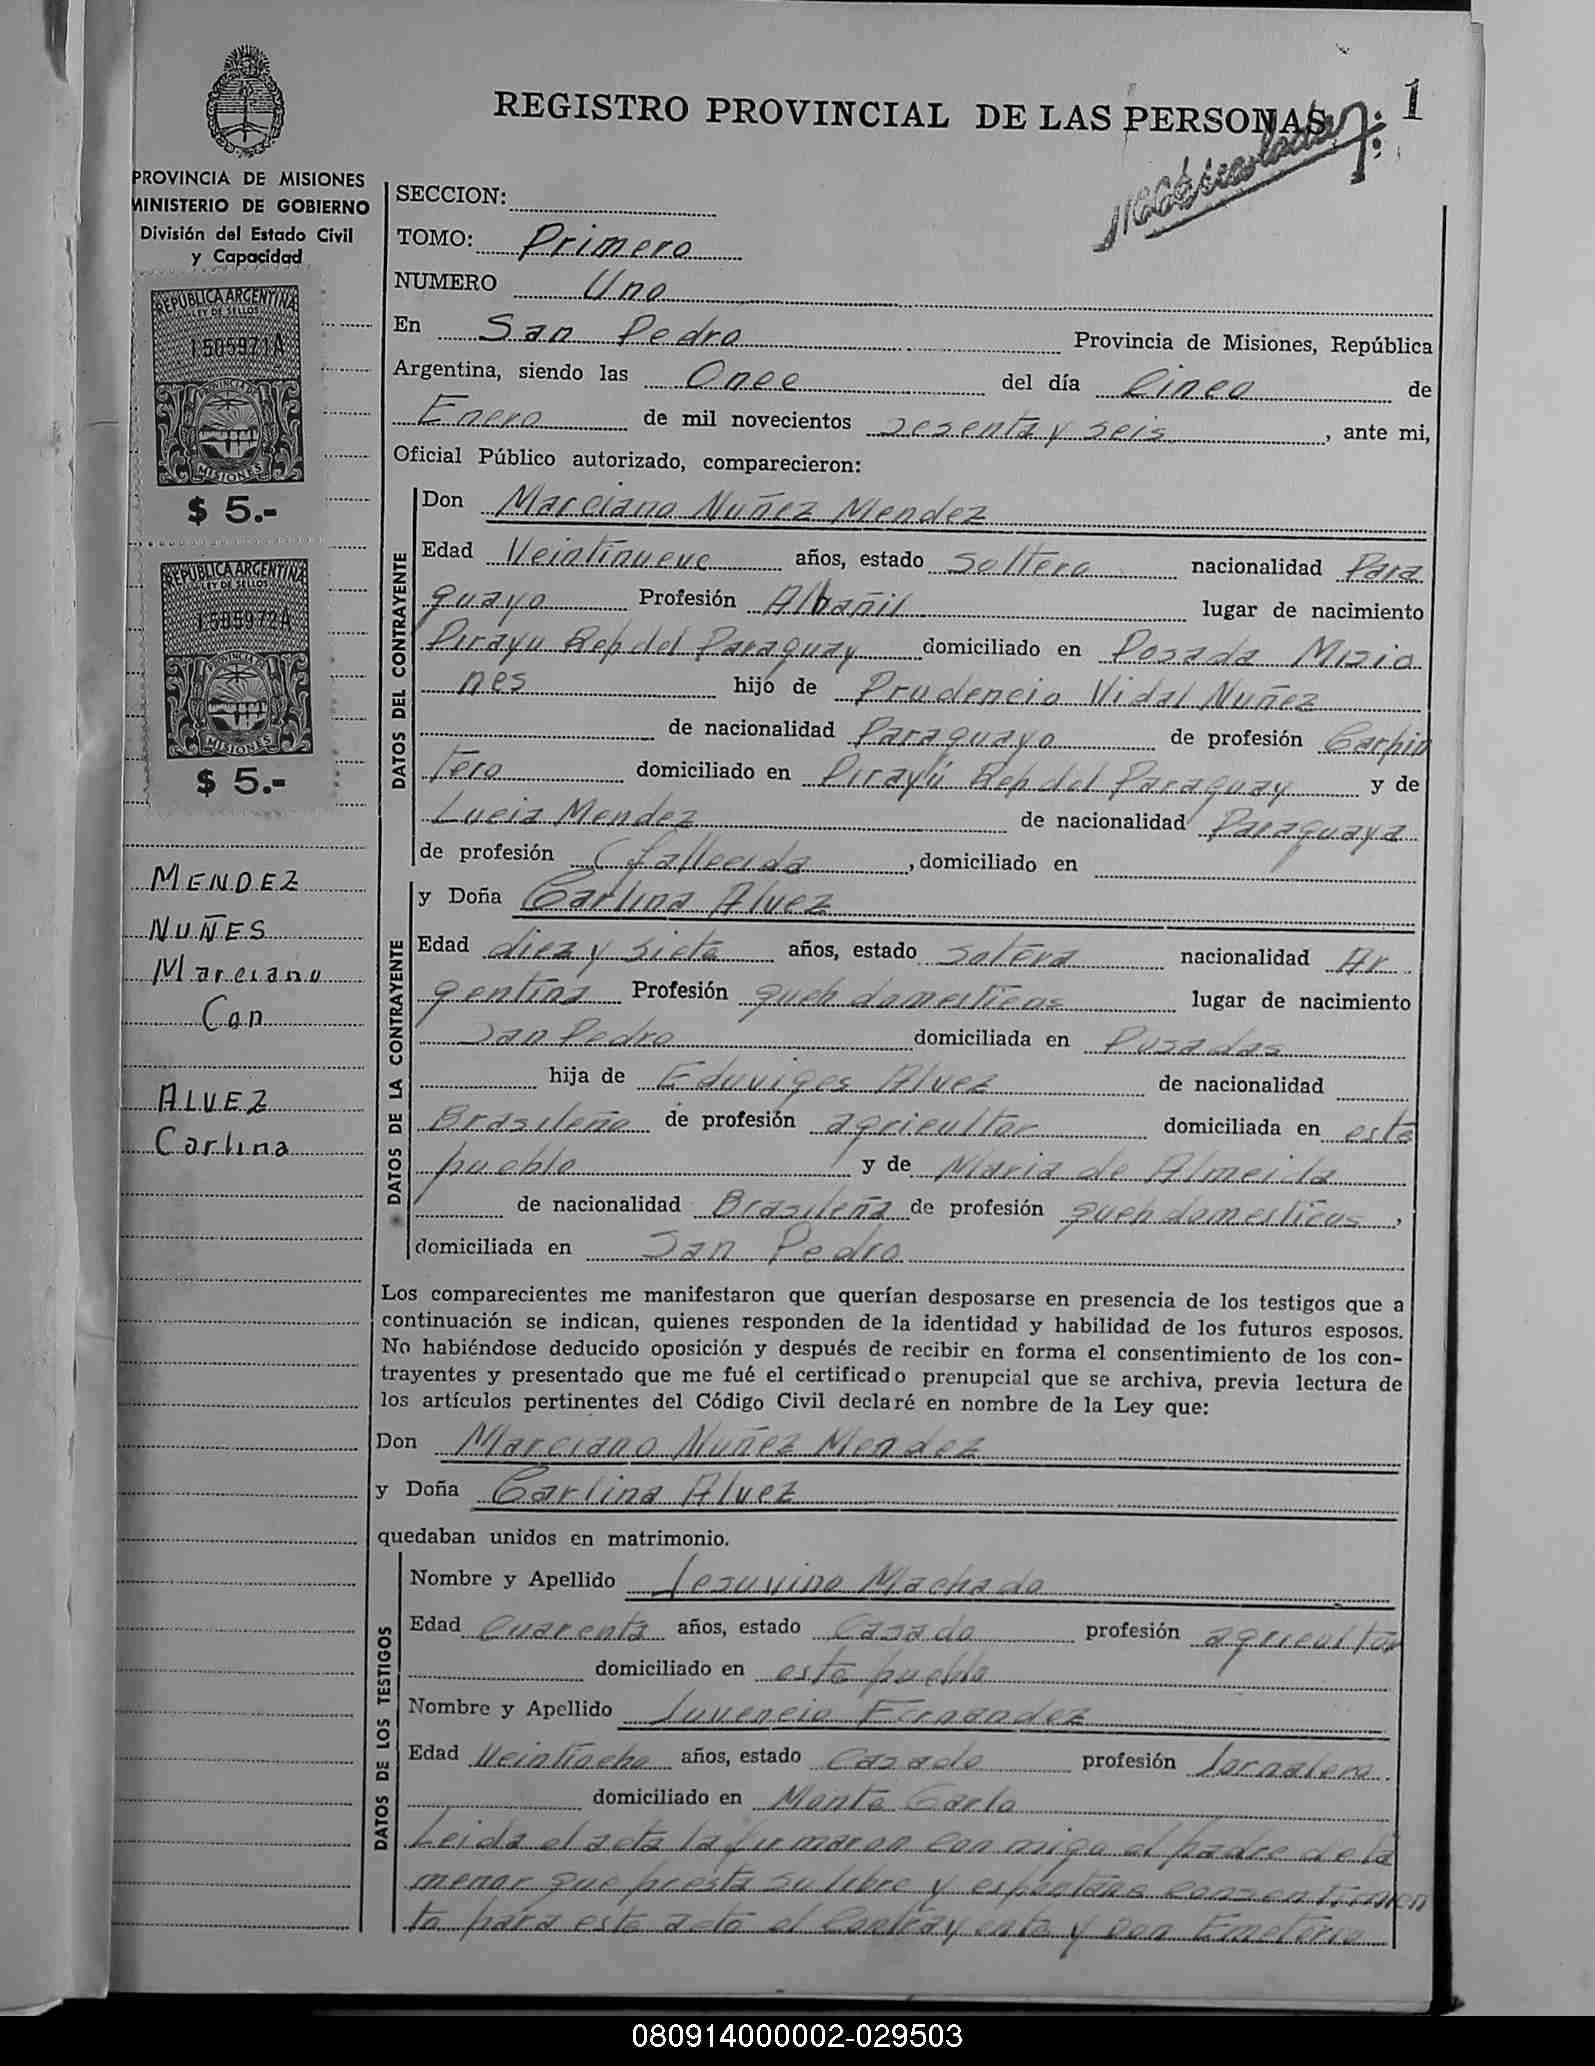 REGISTRO PROVINCIAL DE LAS PERSONAS
1
PROVINCIA DE MISIONES
MINISTERIO DE GOBIERNO
División del Estado Civil
y Capacidad
REPUBLICA ARGENTINA
LEY DE SELLOS
1505971A
PROVINCIA DE
MISIONES
$ 5.-
REPUBLICA ARGENTINA
LEY DE SELLOS
1505972A
PROVINCIA DE
MISIONES
$ 5.-
MENDEZ
NUÑES
Marciano
Con
ALVEZ
Carlina
SECCION:
TOMO: Primero
NUMERO Uno
En San Pedro Provincia de Misiones, República
Argentina, siendo las Once del día Cinco de
Enero de mil novecientos sesenta y seis, ante mi,
Oficial Público autorizado, comparecieron:
DATOS DEL CONTRAYENTE
Don Marciano Nuñez Mendez
Edad Veintinueve años, estado Soltero nacionalidad Para
guayo Profesión Albañil lugar de nacimiento
Pirayu Rep del Paraguay domiciliado en Posada Misio
nes hijo de Prudencio Vidal Nuñez
de nacionalidad Paraguayo de profesión Carpin
tero domiciliado en Pirayú Rep del Paraguay y de
Lucia Mendez de nacionalidad Paraguaya
de profesión (fallecida, domiciliado en
DATOS DE LA CONTRAYENTE
y Doña Carlina Alvez
Edad diez y siete años, estado Soltera nacionalidad Ar
gentina Profesión queh domesticos lugar de nacimiento
San Pedro domiciliada en Posadas
hija de Eduviges Alvez de nacionalidad
Brasileño de profesión agricultor domiciliada en este
pueblo y de Maria de Almeida
de nacionalidad Brasileña de profesión queh domesticos,
domiciliada en San Pedro
Los comparecientes me manifestaron que querían desposarse en presencia de los testigos que a
continuación se indican, quienes responden de la identidad y habilidad de los futuros esposos.
No habiéndose deducido oposición y después de recibir en forma el consentimiento de los con-
trayentes y presentado que me fué el certificado prenupcial que se archiva, previa lectura de
los artículos pertinentes del Código Civil declaré en nombre de la Ley que:
Don Marciano Nuñez Mendez
y Doña Carlina Alvez
quedaban unidos en matrimonio.
DATOS DE LOS TESTIGOS
Nombre y Apellido Jesuvino Machado
Edad Cuarenta años, estado Casado profesión agricultor
domiciliado en este pueblo
Nombre y Apellido Juvencio Fernandez
Edad Veintiocho años, estado Casado profesión Jornalero.
domiciliado en Monte Carlo
Leida el acta la firmaron conmigo el padre de la
menor que presta su libre y espontane consentimien
to para este acto el Contrayente y Don Emeterio
080914000002-029503